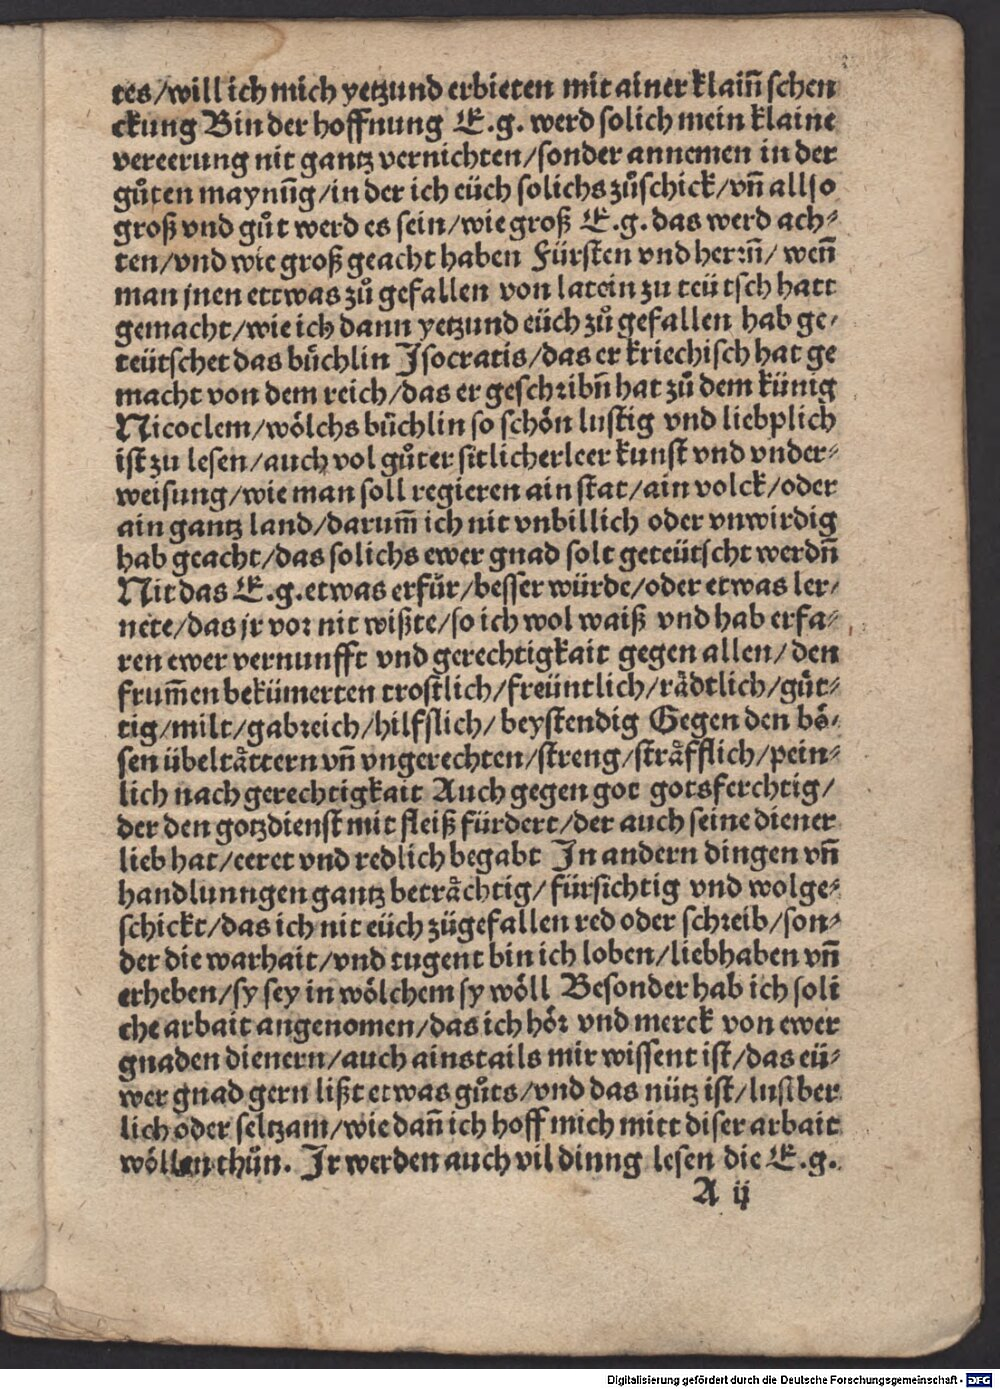 tes/will ich mich yetzund erbieten mit ainer klaiñ schen
ckung Bin der hoffnung E.g. werd solich mein klaine
vereerung nit gantz vernichten/sonder annemen in der
gůten maynũg/in der ich eüch solichs zůschick/vñ allso
groß vnd gůt werd es sein/wie groß E.g. das werd ach⸗
ten/vnd wie groß geacht haben Fürsten vnd herꝛñ/ weñ
man jnen ettwas zů gefallen von latein zu teütsch hatt
gemacht/wie ich dann yetzund eüch zů gefallen hab ge⸗
teütschet das bůchlin Isocratis/das er kriechisch hat ge
macht von dem reich/das er geschꝛibñ hat zů dem künig
Nicoclem/wölchs bůchlin so schön lustig vnd liebplich
ist zu lesen/auch vol gůter sitlicher leer kunst vnd vnder⸗
weisung/wie man soll regieren ain stat/ain volck/oder
ain gantz land/darum̃ ich nit vnbillich oder vnwirdig
hab geacht/das solichs ewer gnad solt geteütscht werdñ
Nit das E.g. etwas erfür/besser würde/oder etwas ler⸗
nete/das jr voꝛ nit wißte/so ich wol waiß vnd hab erfa⸗
ren ewer vernunfft vnd gerechtigkait gegen allen/den
frum̃en bekümerten trostlich/freüntlich/rådtlich/güt⸗
tig/milt/gabꝛeich/hilfflich/beystendig Gegen den bö⸗
sen übelthåttern vñ vngerechten/streng/stråfflich/pein⸗
lich nach gerechtigkait Auch gegen got gotsferchtig/
der den gotzdienst mit fleiß fürdert/der auch seine diener
lieb hat/eeret vnd redlich begabt In andern dingen vñ
handlunngen gantz betråchtig/fürsichtig vnd wolge⸗
schickt/das ich nit eüch zůgefallen red oder schꝛeib/son⸗
der die warhait/vnd tugent bin ich loben/liebhaben vñ
erheben/sy sey in wölchem sy wöll Besonder hab ich soli
che arbait angenomen/das ich höꝛ vnd merck von ewer
gnaden dienern/auch ainstails mir wissent ist/das eü⸗
wer gnad gern lißt etwas gůts/vnd das nütz ist/lustber
lich oder seltzam/wie dañ ich hoff mich mitt diser arbait
wöllen thůn. Ir werden auch vil dinng lesen die E.g.
A ij
Digitalisierung gefördert durch die Deutsche Forschungsgemeinschaft - DFG